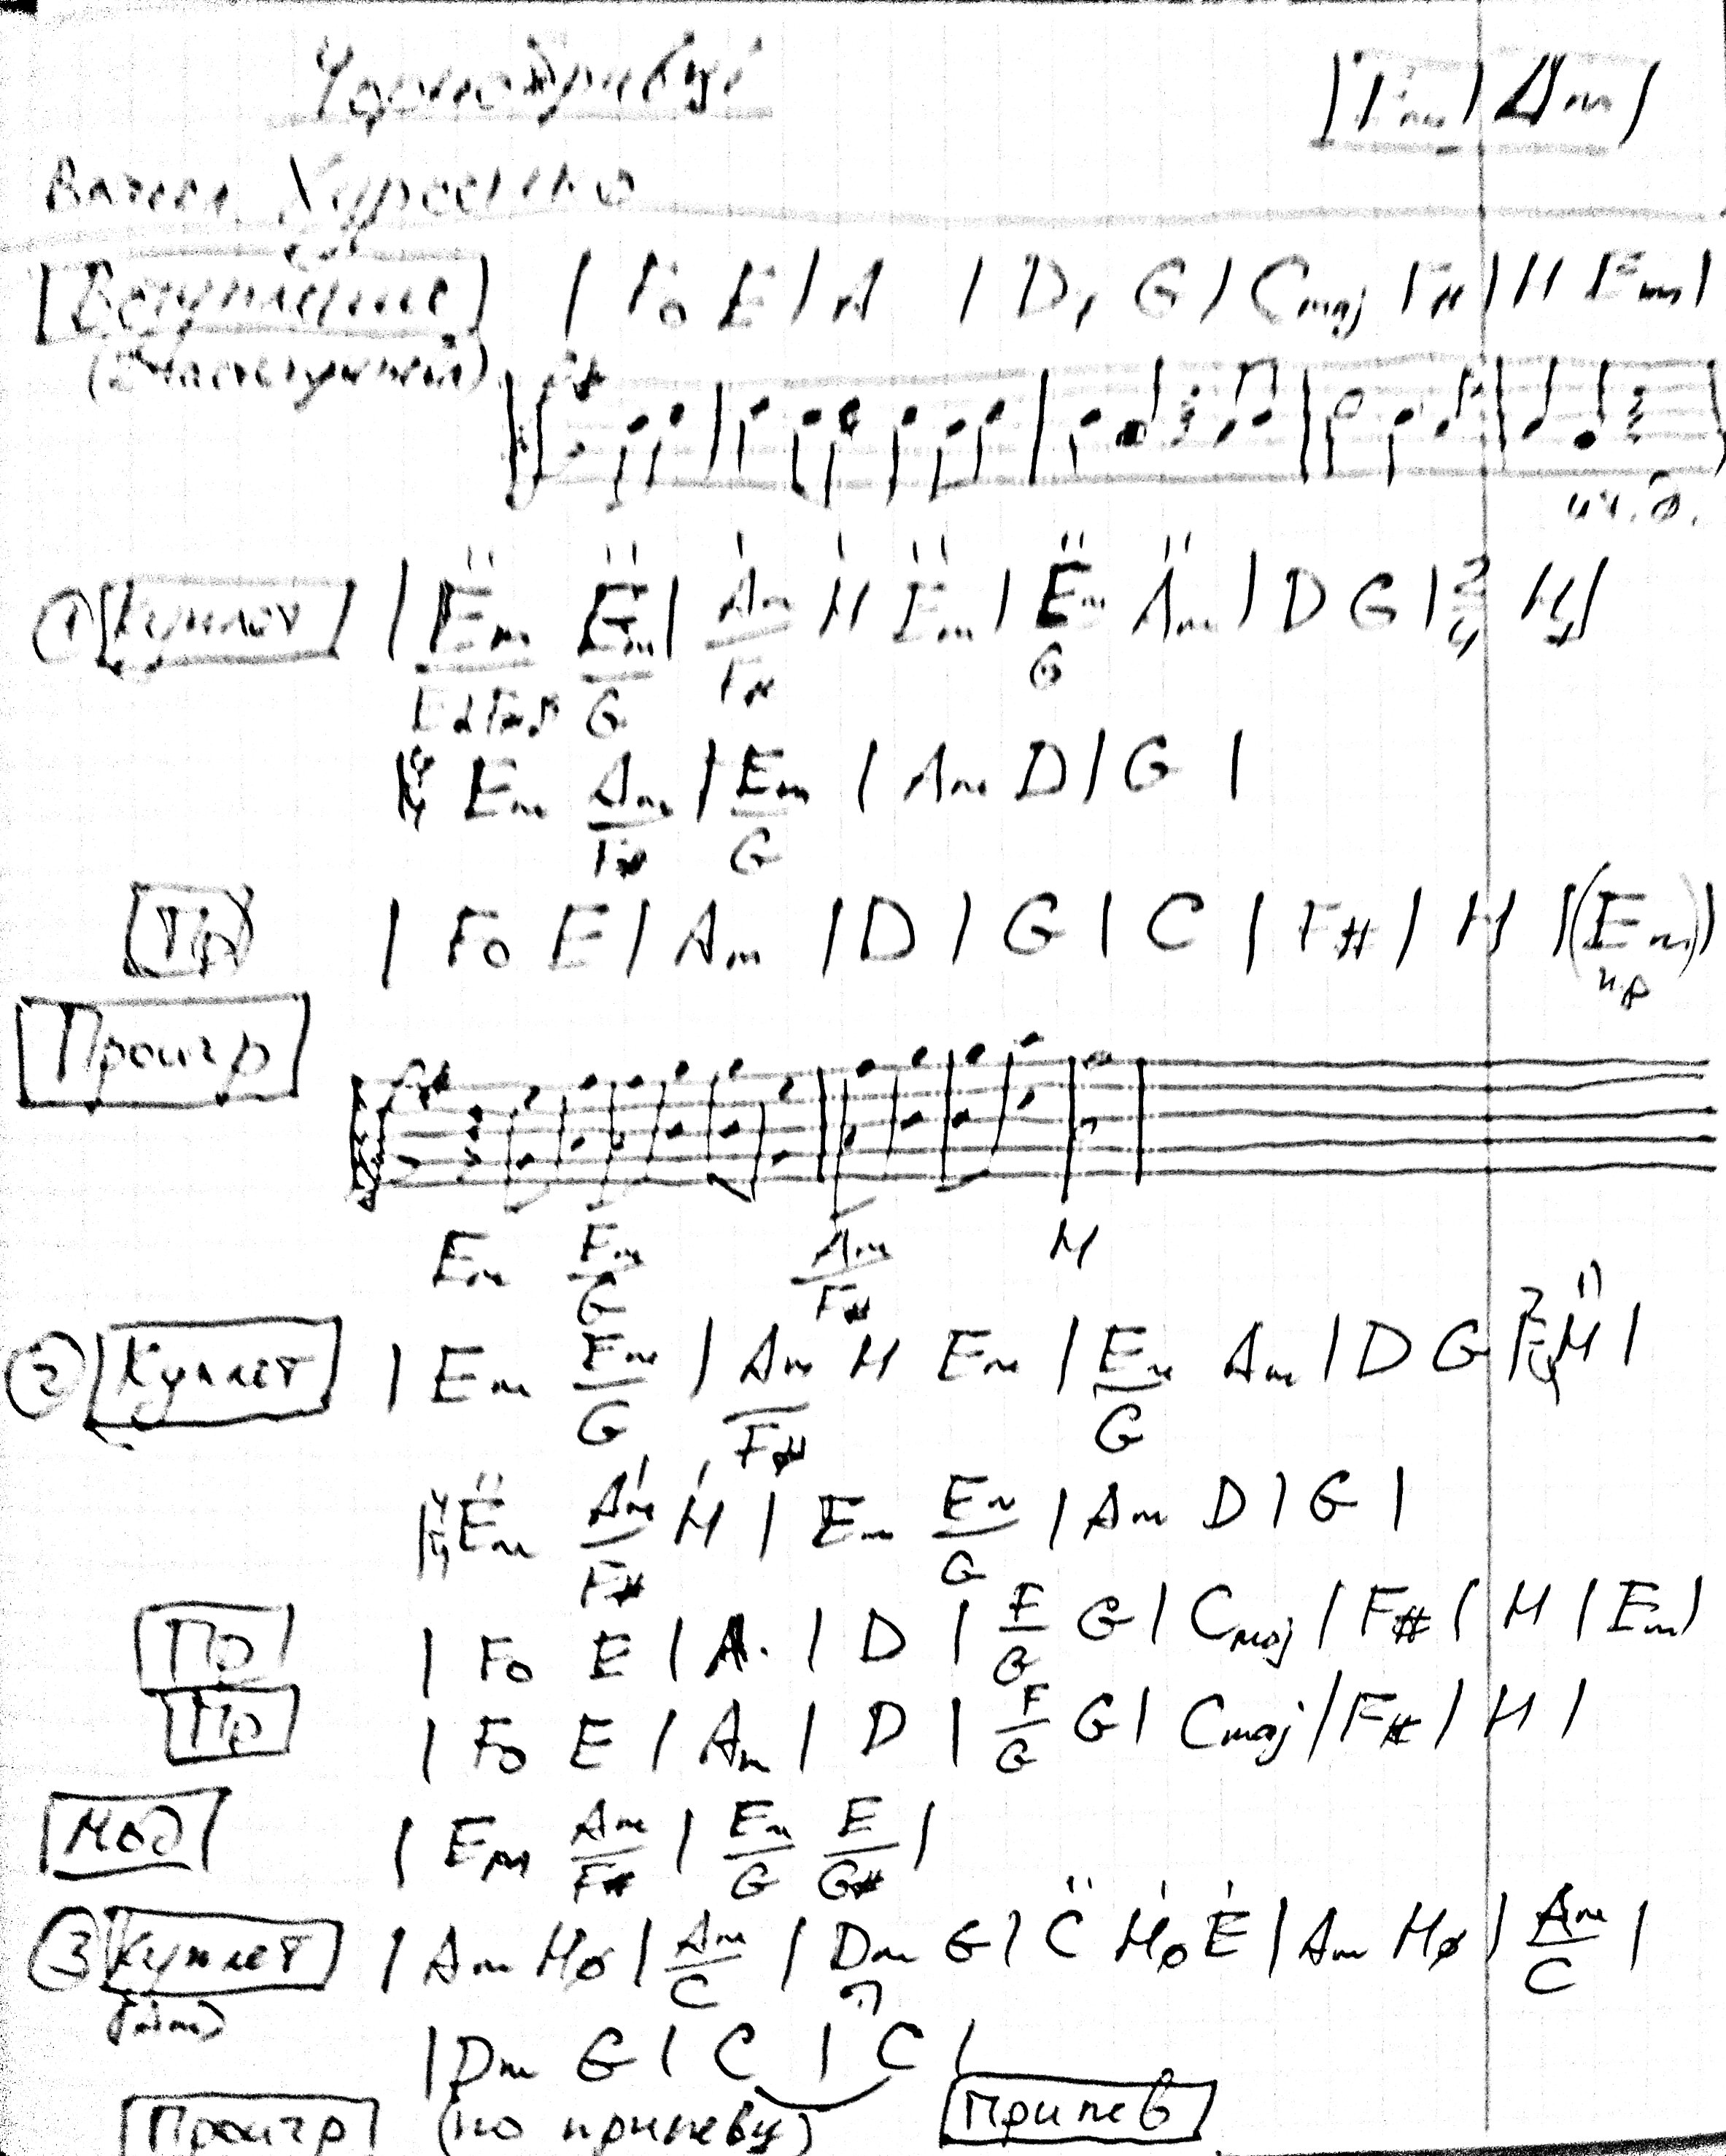 Чорнобривці
| Em | Am |
Вячесл. Хурсенко
[Вступление] | Fo E | A | D, G | Cmaj F# | H Em |
① [Куплет] | Em Em/G | Am/F# H Em | Em/G Am | D G | 2/4 H |
4/4 Em Am/F# | Em/G | Am D | G |
[Пр] | Fo E | Am | D | G | C | F# | H | (Em) |
[Проигр]
Em Em/G Am/F# H
② [Куплет] | Em Em/G | Am/F# H Em | Em/G Am | D G | 2/4 H |
| 4/4 Em Am/F# H | Em Em/G | Am D | G |
[Пр] | Fo E | A. | D | F/G G | Cmaj | F# | H | Em |
[Пр] | Fo E | Am | D | F/G G | Cmaj | F# | H |
[Мод] | Em Am/F# | Em/G E/G# |
③ [Куплет] | Am Hø | Am/C | Dm G | C Hø E | Am Hø | Am/C |
| Dm G | C | C |
[Проигр] (по припеву) [Припев]